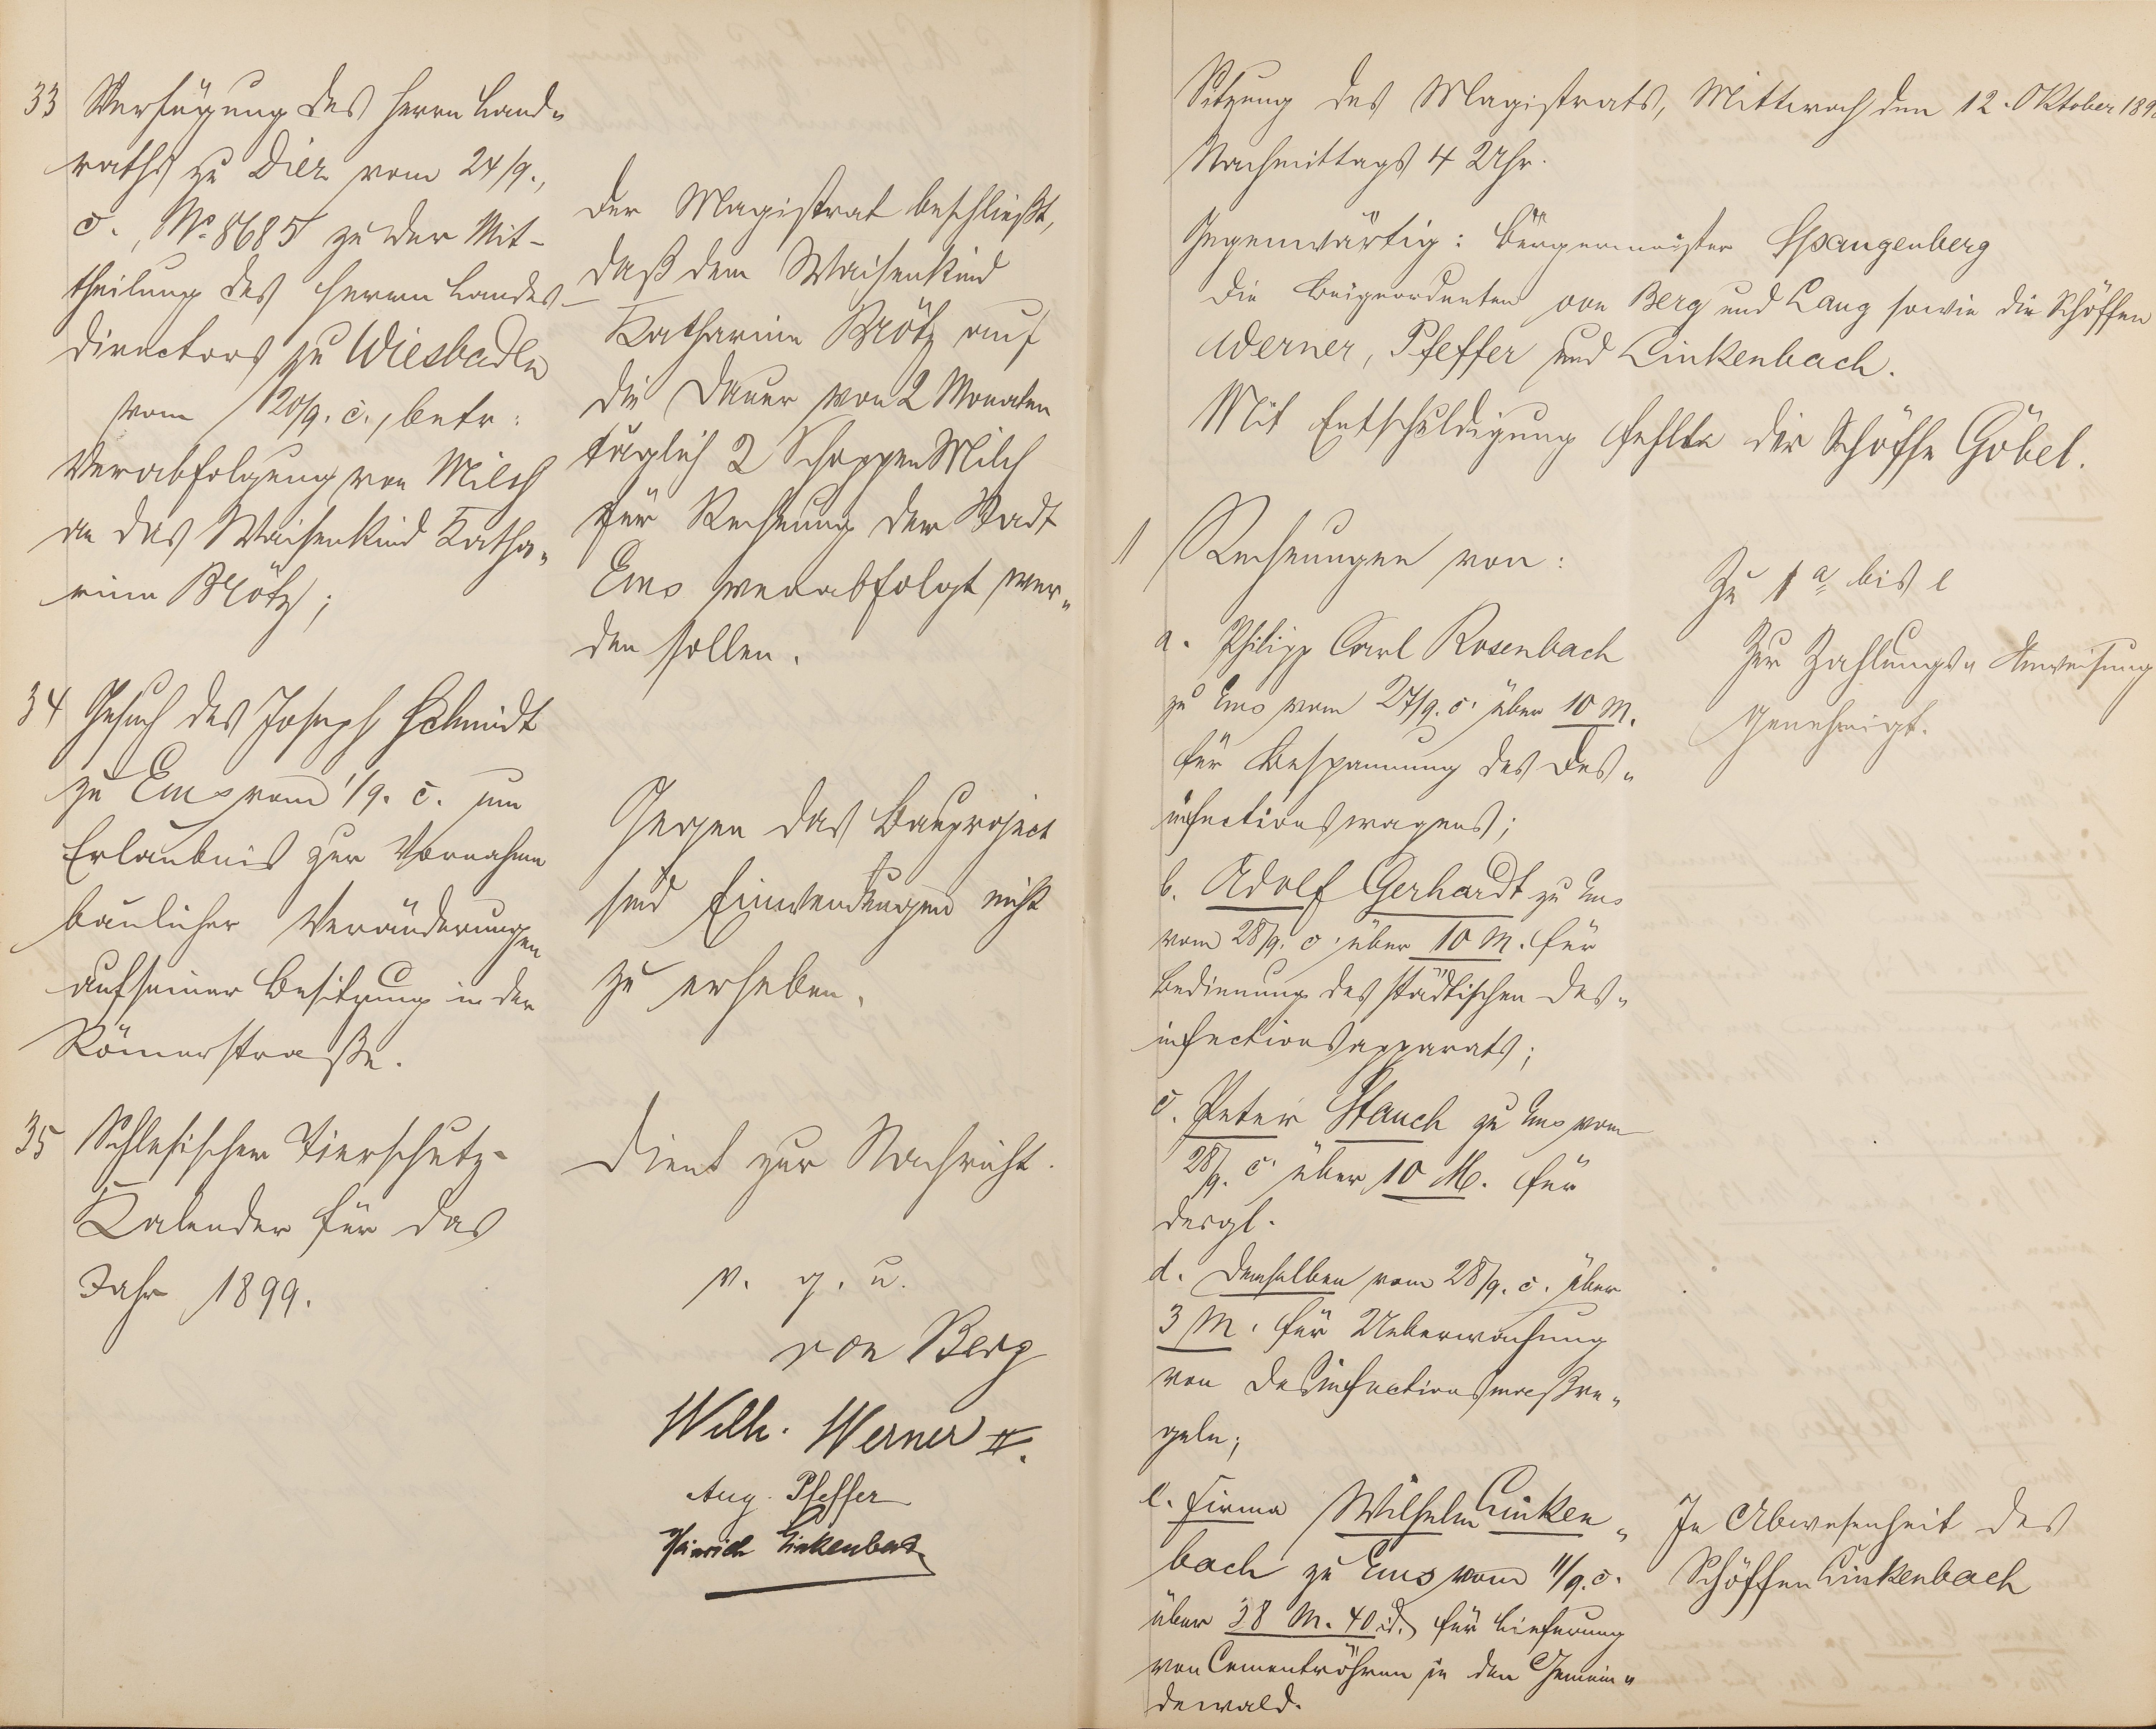 33 Verfügung des Herrn Land-
raths zu Diez vom 24/9.,
c., No. 8685 zu der Mit-
theilung des Herrn Landes-
directors zu Wiesbaden
vom 20/9. c., betr:
Verabfolgung von Milch
an das Waisenkind Katha-
rine Brötz;
Der Magistrat beschließt,
daß dem Waisenkind
Katharine Brötz auf
die Dauer von 2 Monaten
täglich 2 Schoppen Milch
für Rechnung der Stadt
Ems verabfolgt wer-
den sollen.
34 Gesuch des Joseph Schmidt
zu Ems vom 1/9. c. um
Erlaubnis zur Vornahme
baulicher Veränderungen
auf seiner Besitzung in der
Römerstraße.
Gegen das Bauproject
sind Einwendungen nicht
zu erheben.
35 Schlesischer Tierschutz-
Kalender für das
Jahr 1899.
Dient zur Nachricht.
v. g. u.
von Berg
Wilh. Werner II.
Aug. Pfeffer
Heinrich Linkenbach
Sitzung des Magistrats, Mittwoch den 12. Oktober 189
Nachmittags 4 Uhr.
Gegenwärtig: Bürgermeister Spangenberg
die Beigeordneten von Berg und Lang sowie die Schöffen
Werner, Pfeffer und Linkenbach.
Mit Entschuldigung fehlte der Schöffe Göbel.
1 Rechnungen von:
a. Philipp Carl Rosenbach
zu Ems vom 27/9. c. über 10 M.
für Bespannung des Des-
infectionswagens;
b. Adolf Gerhardt zu Ems
vom 28/9. c. über 10 M. für
Bedienung des städtischen Des-
infectionsapparats;
c. Peter Stauch zu Ems vom
28/9. c. über 10 M. für
desgl.
d. Demselben vom 28/9. c. über
3 M. für Ueberwachung
von Desinfectionsmaßre-
geln;
e. Firma Wilhelm Linken-
bach zu Ems vom 11/9. c.
über 38 M. 40 d. für Lieferung
von Cementröhren in den Gemein-
dewald.
Zu 1 a bis e
Zur Zahlungs-Anweisung
genehmigt.
In Abwesenheit des
Schöffen Linkenbach